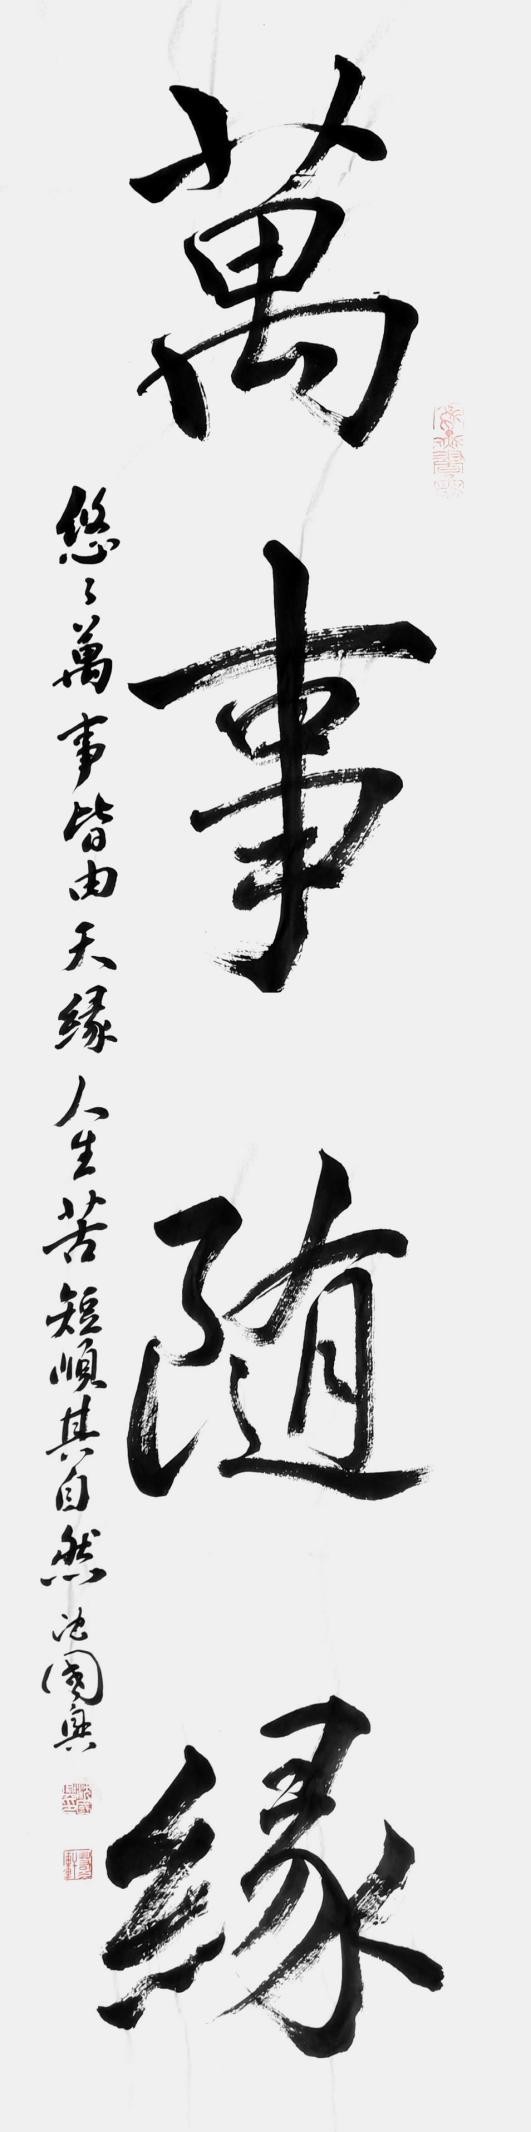 萬事随緣
悠々萬事皆由天緣人生苦短順其自然沈國興